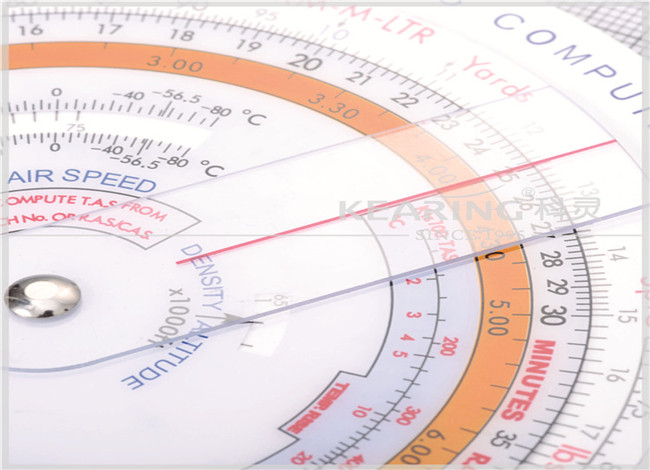 COMPU
M-M-LTR
Yards
10
11
12
13
14
15
16
17
16
17
18
19
20
21
22
23
24
25
26
27
28
29
30
35
3.00
3.30
4.00
5.00
6.00
MINUTES
0 -40 -56.5 -80 °C
75
0 -40 -56.5 -80 °C
AIR SPEED
COMPUTE T.A.S FROM
CH No. OR R.A.S/CAS.
KEARING®科灵
SINCE 1995
DENSITY ALTITUDE
x1000
65
°C
2
3
4
5
10
20
200
300
TEMP. RISE
lb